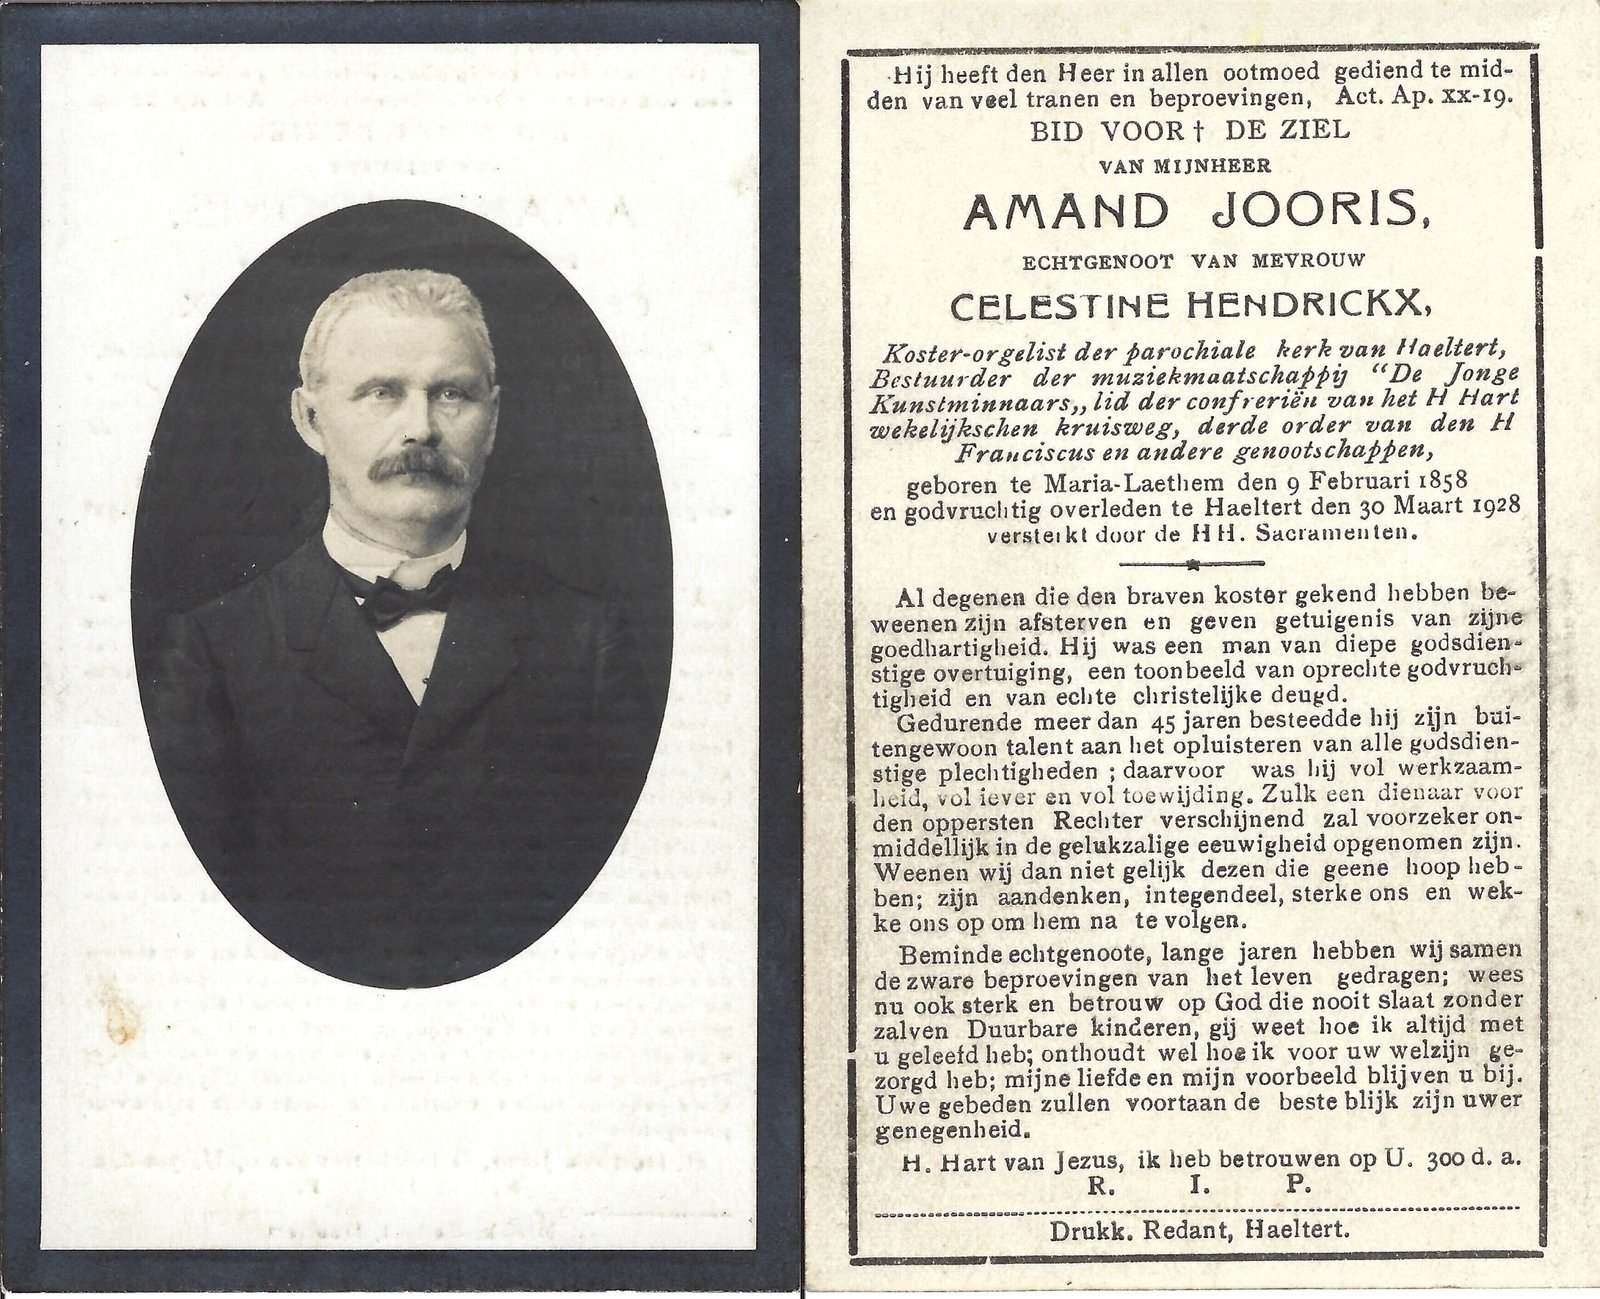 Hij heeft den Heer in allen ootmoed gediend te mid-
den van veel tranen en beproevingen, Act. Ap. xx-19.
BID VOOR † DE ZIEL
VAN MIJNHEER
AMAND JOORIS,
ECHTGENOOT VAN MEVROUW
CELESTINE HENDRICKX,
Koster-orgelist der parochiale kerk van Haeltert,
Bestuurder der muziekmaatschappij “De Jonge
Kunstminnaars„ lid der confreriën van het H Hart
wekelijkschen kruisweg, derde order van den H
Franciscus en andere genootschappen,
geboren te Maria-Laethem den 9 Februari 1858
en godvruchtig overleden te Haeltert den 30 Maart 1928
versterkt door de HH. Sacramenten.
Al degenen die den braven koster gekend hebben be-
weenen zijn afsterven en geven getuigenis van zijne
goedhartigheid. Hij was een man van diepe godsdien-
stige overtuiging, een toonbeeld van oprechte godvruch-
tigheid en van echte christelijke deugd.
Gedurende meer dan 45 jaren besteedde hij zijn bui-
tengewoon talent aan het opluisteren van alle godsdien-
stige plechtigheden ; daarvoor was hij vol werkzaam-
heid, vol iever en vol toewijding. Zulk een dienaar voor
den oppersten Rechter verschijnend zal voorzeker on-
middellijk in de gelukzalige eeuwigheid opgenomen zijn.
Weenen wij dan niet gelijk dezen die geene hoop heb-
ben; zijn aandenken, integendeel, sterke ons en wek-
ke ons op om hem na te volgen.
Beminde echtgenoote, lange jaren hebben wij samen
de zware beproevingen van het leven gedragen; wees
nu ook sterk en betrouw op God die nooit slaat zonder
zalven Duurbare kinderen, gij weet hoe ik altijd met
u geleefd heb; onthoudt wel hoe ik voor uw welzijn ge-
zorgd heb; mijne liefde en mijn voorbeeld blijven u bij.
Uwe gebeden zullen voortaan de beste blijk zijn uwer
genegenheid.
H. Hart van Jezus, ik heb betrouwen op U. 300 d. a.
R. I. P.
Drukk. Redant, Haeltert.